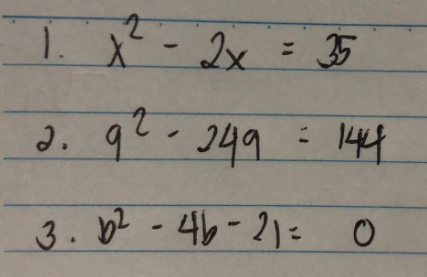 1. x² - 2x = 35
2. q² - 24q = 144
3. b² - 4b - 21 = 0